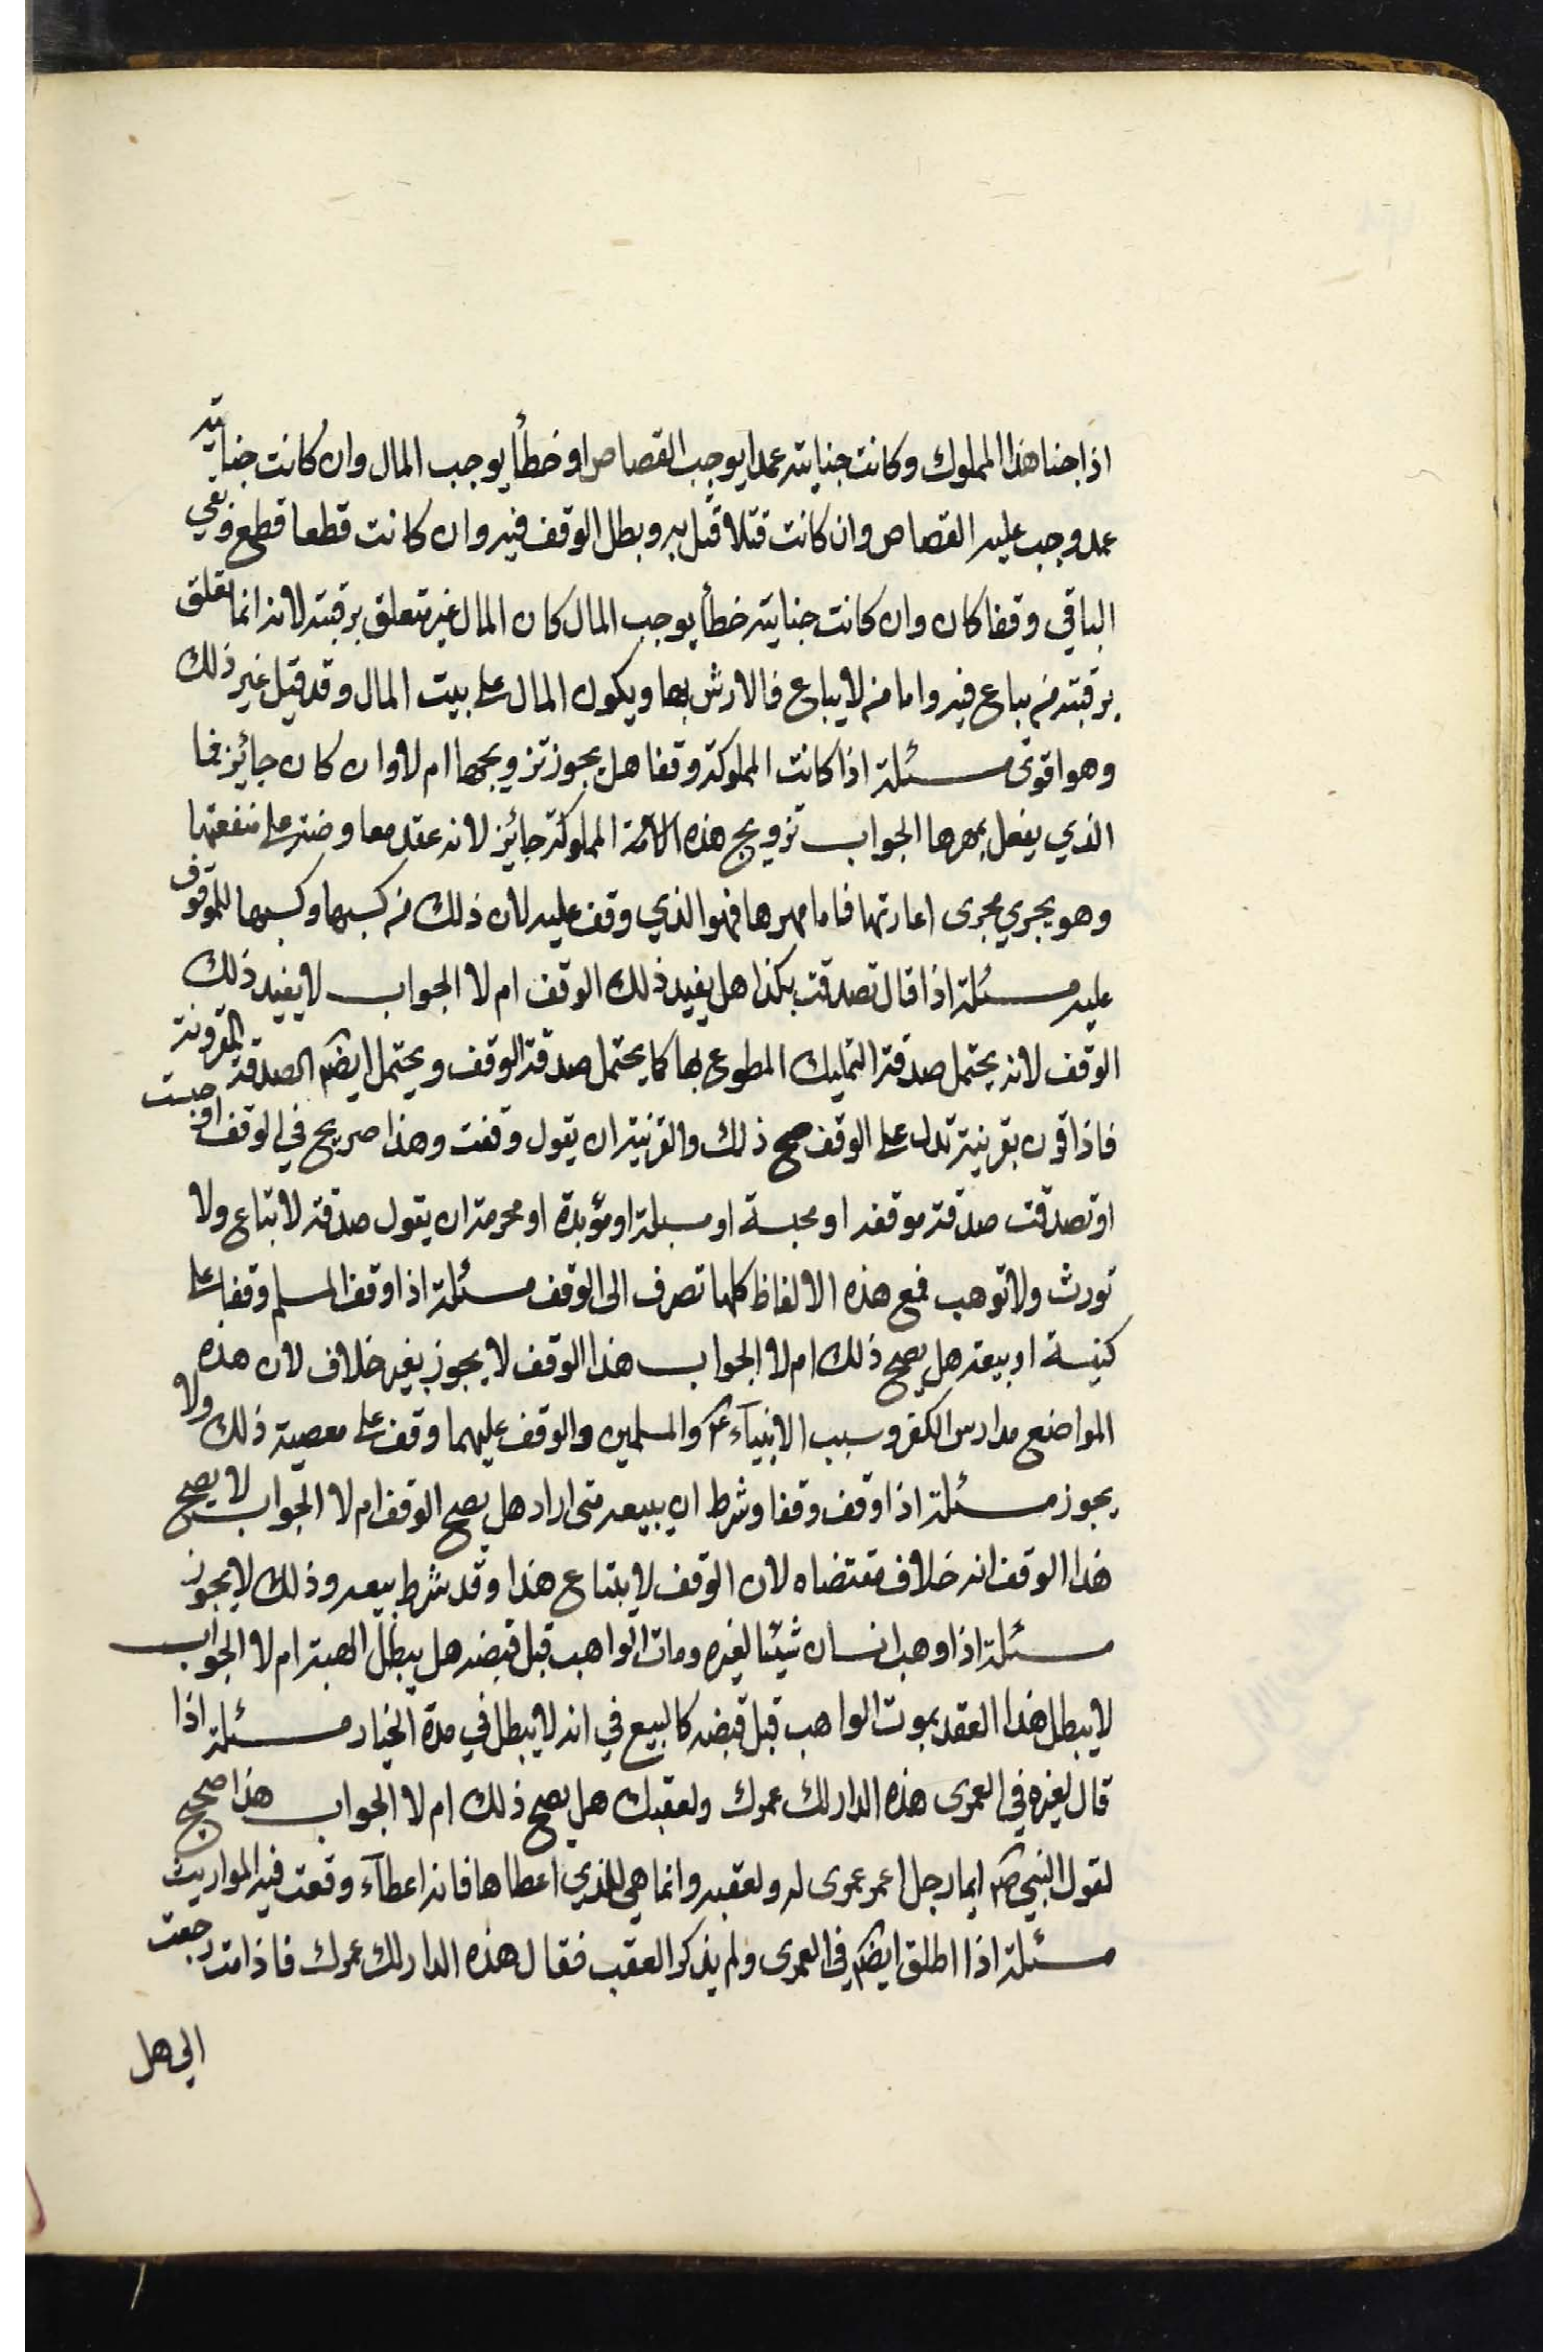 اذا جنا هذا المملوك وكانت جنايته عمدا يوجب القصاص او خطأ يوجب المال وان كانت جنايته
عمد وجب عليه القصاص وان كانت قتلا قتل به وبطل الوقف فيه وان كانت قطعا قطع وبقي
الباقي وقفا كان وان كانت جنايته خطأ يوجب المال كان المال غير متعلق برقبته لانه انما تعلق
برقبته من يباع فيه واما من لا يباع فالارش بها ويكون المال على بيت المال وقد قيل غير ذلك
وهو اقوى مسئلة اذا كانت المملوكة وقفا هل يجوز تزويجها ام لا وان كان جائز فما
الذي يفعل بمهرها الجواب تزويج هذه الامة المملوكة جائز لانه عقد معاوضة على منفعتها
وهو يجري مجرى اعارتها فاما مهرها فهو الذي وقف عليه لان ذلك من كسبها وكسبها للموقوف
عليه مسئلة اذا قال تصدقت بكذا هل يفيد ذلك الوقف ام لا الجواب لا يفيد ذلك
الوقف لانه يحتمل صدقة التمليك المطوع بها كما يحتمل صدقة الوقف ويحتمل ايضا الصدقة المقرونة
فاذا قرن بقرينة تدل على الوقف صح ذلك والقرينة ان يقول وقفت وهذا صريح في الوقف او حبست
او تصدقت صدقة موقفه او محبسة او مسبلة او مؤبدة او محرمة ان يقول صدقة لا تباع ولا
تورث ولا توهب فمع هذه الالفاظ كلها تصرف الى الوقف مسئلة اذا وقف المسلم وقفا على
كنيسة او بيعة هل يصح ذلك ام لا الجواب هذا الوقف لا يجوز بغير خلاف لان هذه
المواضع مدارس الكفر وسبب الانبياء ع والمسلمين والوقف عليهما وقف على معصية ذلك ولا
يجوز مسئلة اذا وقف وقفا وشرط ان يبيعه متى اراد هل يصح الوقف ام لا الجواب لا يصح
هذا الوقف انه خلاف مقتضاه لان الوقف لا يبتاع هذا وقد شرط بيعه وذلك لا يجوز
مسئلة اذا وهب انسان شيئا لغيره ومات الواهب قبل قبضه هل يبطل الهبة ام لا الجواب
لا يبطل هذا العقد بموت الواهب قبل قبضه كالبيع في انه لا يبطل في مدة الخيار مسئلة اذا
قال لغيره في العمرى هذه الدار لك عمرك ولعقبك هل يصح ذلك ام لا الجواب هذا صحيح
لقول النبي ص ايما رجل اعمر عمرى له ولعقبه وانما هي للذي اعطاها فانه اعطاء وقعت فيه المواريث
مسئلة اذا اطلق ايضا في العمرى ولم يذكر العقب فقال هذه الدار لك عمرك فاذا مت رجعت
الي هل